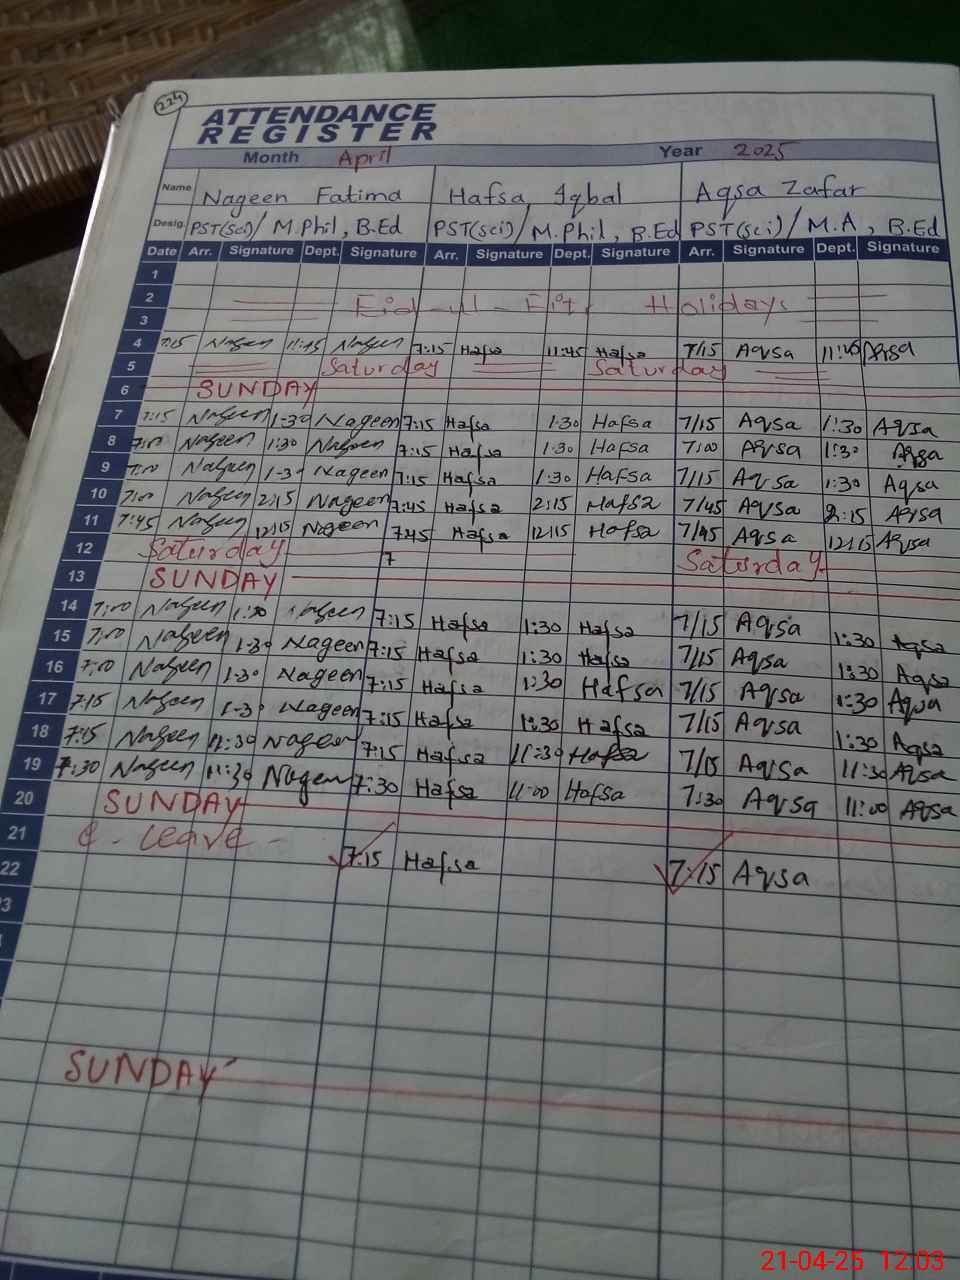 224
ATTENDANCE
REGISTER
Month April Year 2025
Name Nageen Fatima Hafsa Iqbal Aqsa Zafar
Desig. PST(Sci)/M.Phil, B.Ed PST(sci)/M.Phil, B.Ed PST(sci)/M.A, B.Ed
Date Arr. Signature Dept. Signature Arr. Signature Dept. Signature Arr. Signature Dept. Signature
1
2 Eid-ul-Fitr Holidays
3
4 7:15 Nageen 11:45 Nageen 7:15 Hafsa 11:45 Hafsa 7/15 Aqsa 11:45 Aqsa
5 Saturday Saturday
6 SUNDAY
7 7:15 Nageen 1-30 Nageen 7:15 Hafsa 1:30 Hafsa 7/15 Aqsa 1:30 Aqsa
8 7:00 Nageen 1:30 Nageen 7:15 Hafsa 1:30 Hafsa 7/00 Aqsa 1:30 Aqsa
9 7:00 Nageen 1-30 Nageen 7:15 Hafsa 1:30 Hafsa 7/15 Aqsa 1:30 Aqsa
10 7:00 Nageen 2:15 Nageen 7:45 Hafsa 2:15 Hafsa 7/45 Aqsa 2:15 Aqsa
11 7:45 Nageen 12:15 Nageen 7:45 Hafsa 12:15 Hafsa 7/45 Aqsa 12:15 Aqsa
12 Saturday 7 Saturday
13 SUNDAY
14 7:00 Nageen 1:30 Nageen 7:15 Hafsa 1:30 Hafsa 7/15 Aqsa 1:30 Aqsa
15 7:00 Nageen 1-30 Nageen 7:15 Hafsa 1:30 Hafsa 7/15 Aqsa 1:30 Aqsa
16 7:00 Nageen 1-30 Nageen 7:15 Hafsa 1:30 Hafsa 7/15 Aqsa 1:30 Aqsa
17 7:15 Nageen 1-30 Nageen 7:15 Hafsa 1:30 Hafsa 7/15 Aqsa 1:30 Aqsa
18 7:15 Nageen 11:30 Nageen 7:15 Hafsa 11:30 Hafsa 7/15 Aqsa 11:30 Aqsa
19 7:30 Nageen 11:30 Nageen 7:30 Hafsa 11:00 Hafsa 7:30 Aqsa 11:00 Aqsa
20 SUNDAY
21 Leave 7:15 Hafsa 7:15 Aqsa
22
3
SUNDAY
21-04-25 12:03